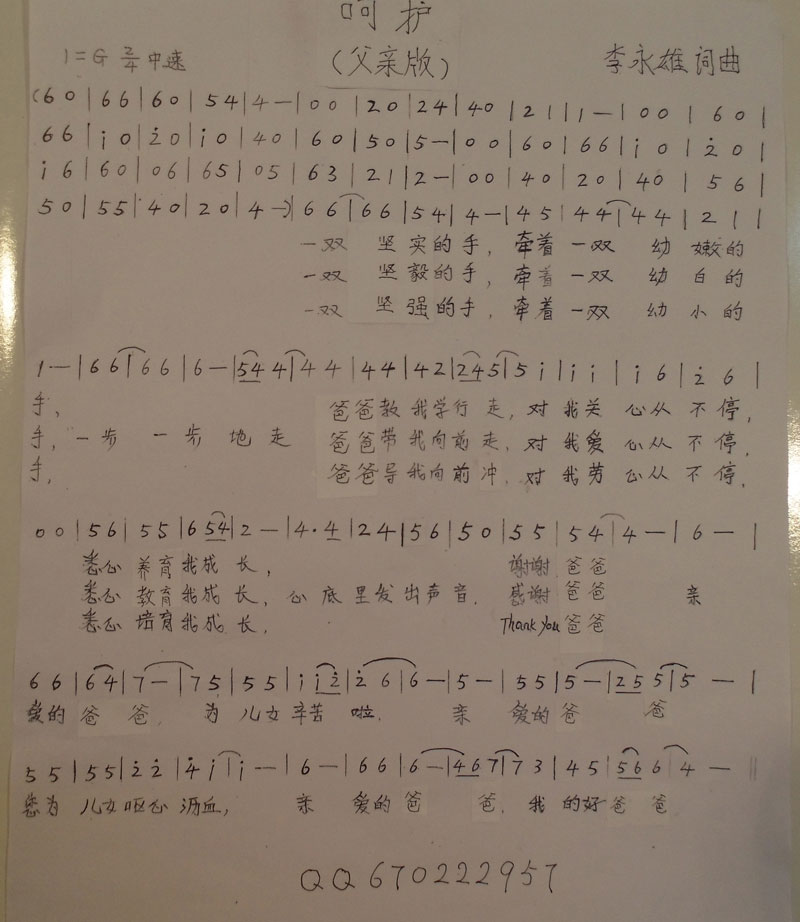 呵护
1=G 2/4 中速 (父亲版) 李永雄词曲
(6 0 | 6 6 | 6 0 | 5 4 | 4 — | 0 0 | 2 0 | 2 4 | 4 0 | 2 1 | 1 — | 0 0 | 6 0 |
6 6 | i 0 | 2̇ 0 | i 0 | 4 0 | 6 0 | 5 0 | 5 — | 0 0 | 6 0 | 6 6 | i 0 | 2̇ 0 |
i 6 | 6 0 | 0 6 | 6 5 | 0 5 | 6 3 | 2 1 | 2 — | 0 0 | 4 0 | 2 0 | 4 0 | 5 6 |
5 0 | 5 5 | 4 0 | 2 0 | 4 —) | 6 6 | 6 6 | 5 4 | 4 — | 4 5 | 4 4 | 4 4 | 2 1 |
一双 坚实的手，牵着一双 幼嫩的
一双 坚毅的手，牵着一双 幼白的
一双 坚强的手，牵着一双 幼小的
1 — | 6 6 | 6 6 | 6 — | 5 4 4 | 4 4 | 4 4 | 4 2 | 2 4 5 | 5 i | i i | i 6 | 2̇ 6 |
手， 爸爸教我学行走，对我关心从不停，
手，一步一步地走 爸爸带我向前走，对我爱心从不停，
手， 爸爸导我向前冲，对我劳心从不停，
0 0 | 5 6 | 5 5 | 6 5 4 | 2 — | 4 · 4 | 2 4 | 5 6 | 5 0 | 5 5 | 5 4 | 4 — | 6 — |
悉心养育我成长， 谢谢爸爸
悉心教育我成长，心底里发出声音．感谢爸爸 亲
悉心培育我成长， Thank you 爸爸
6 6 | 6 4 | 7 — | 7 5 | 5 5 | i i 2̇ | 2̇ 6 | 6 — | 5 — | 5 5 | 5 — | 2 5 5 | 5 — |
爱的爸爸，为儿女辛苦啦． 亲爱的爸爸
5 5 | 5 5 | 2̇ 2̇ | 4̇ i | i — | 6 — | 6 6 | 6 — | 4 6 7 | 7 3 | 4 5 | 5 6 6 | 4 — ||
您为儿女呕心沥血，亲爱的爸爸．我的好爸爸
QQ 670222957